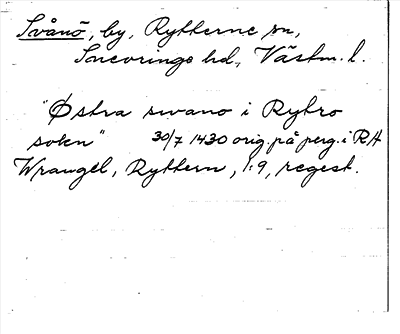 Svånö, by, Rytterne sn,
Snevringe hd., Västm. l.
"Østra swano i Rytro
soken" 30/7 1430 orig. på perg. i RA
Wrangel, Ryttern, 1:9, regest.